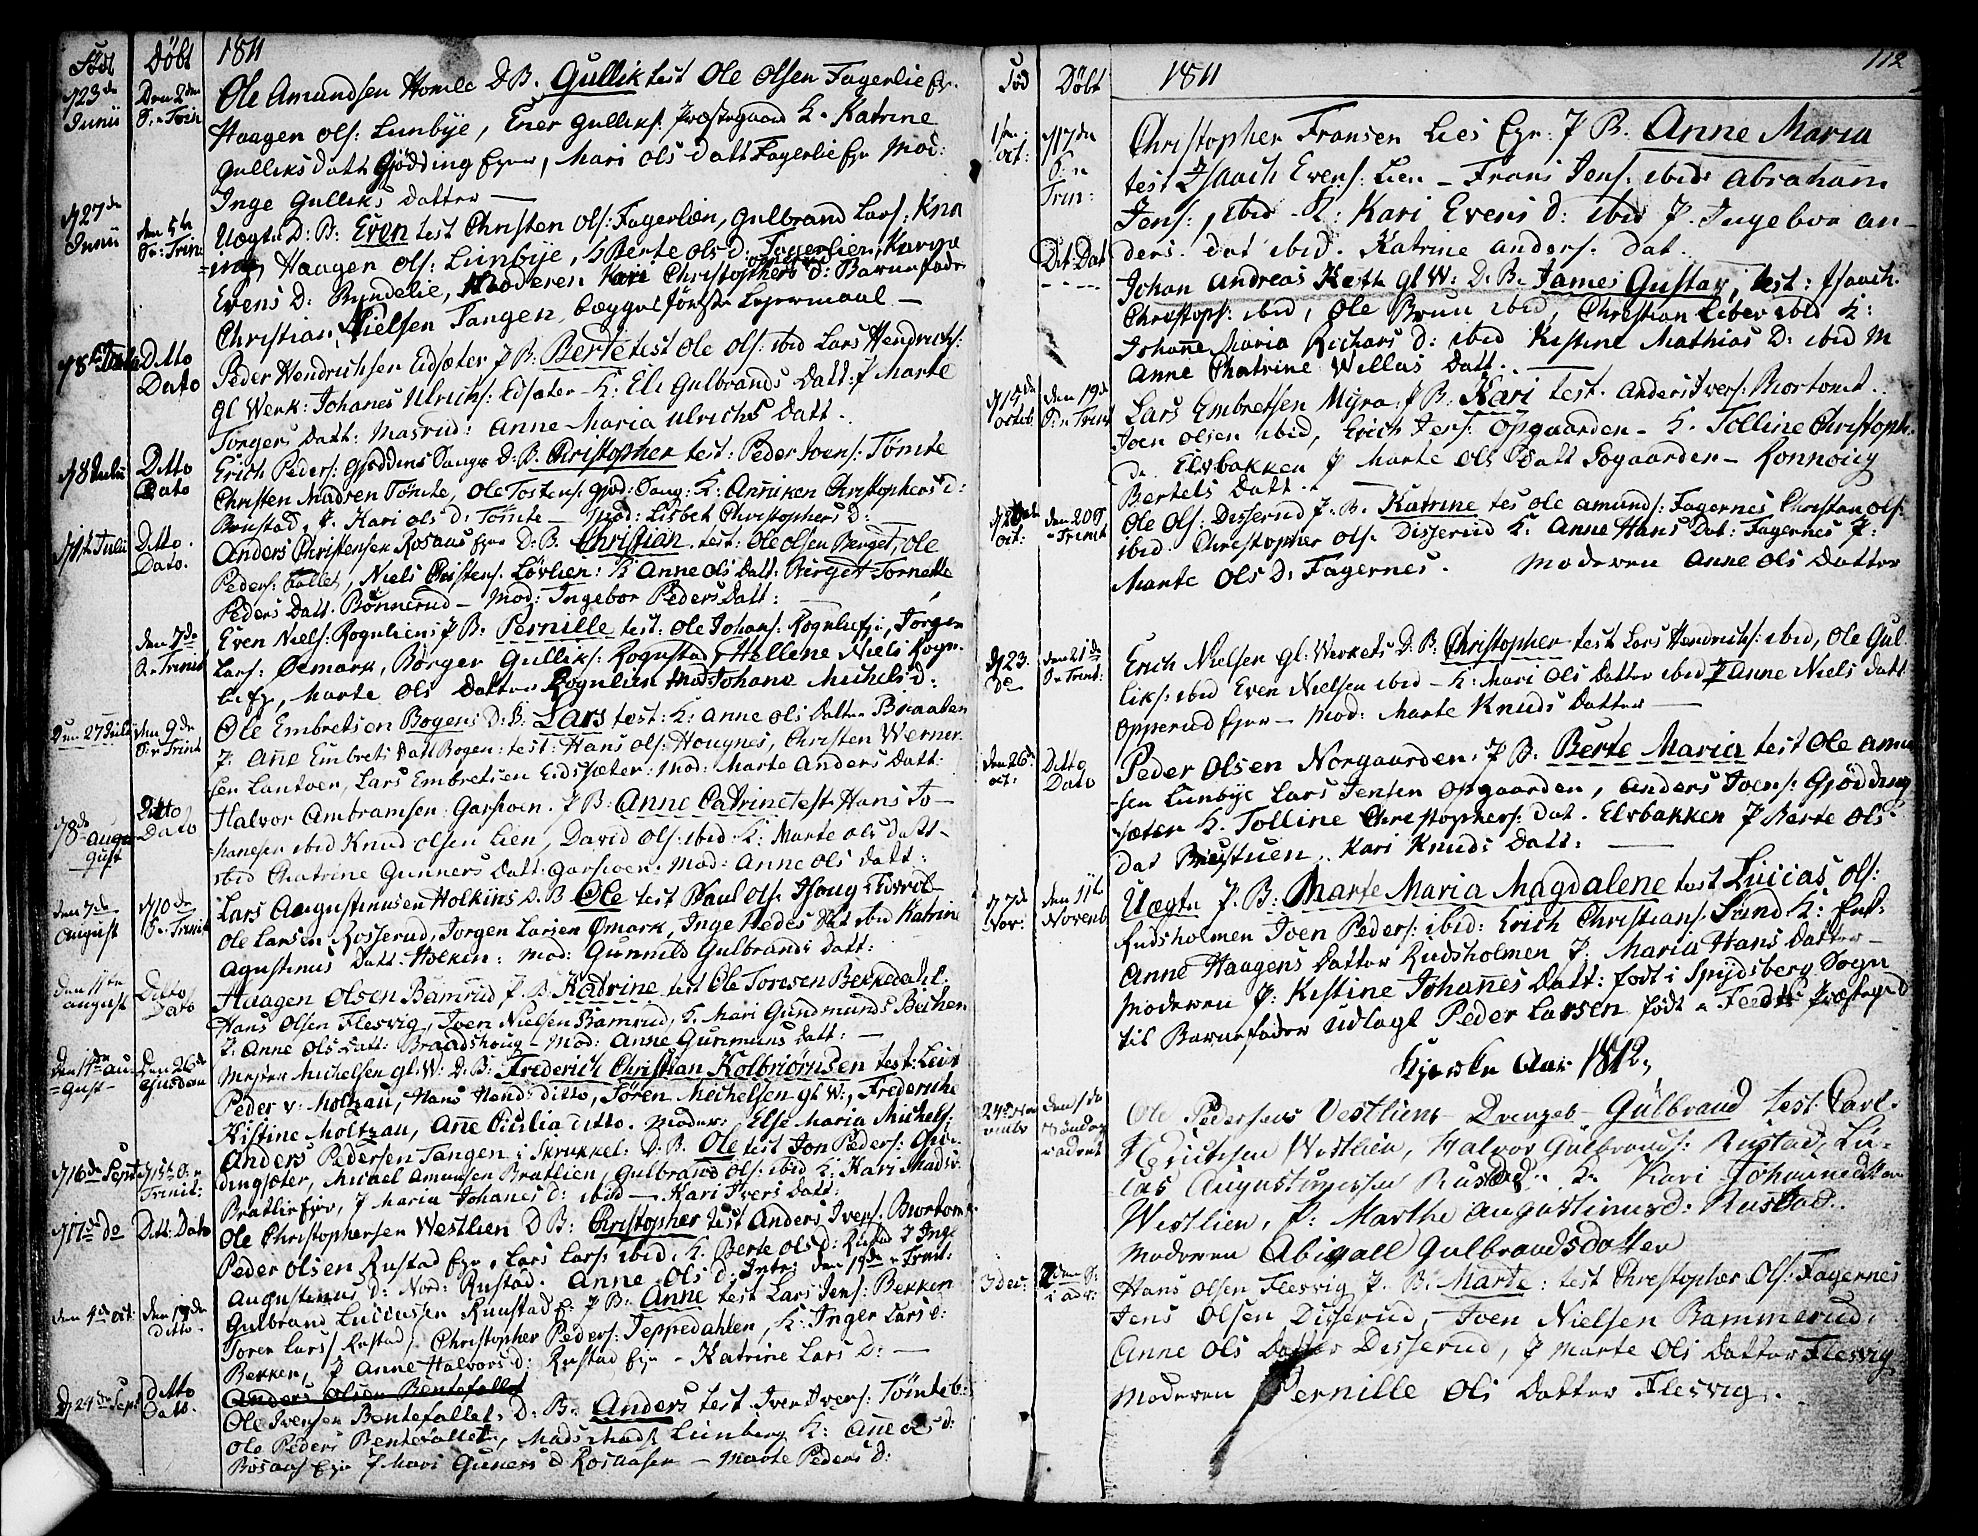 Föd Döbt 1811
d 23de Junii Den 2den S: n Trin Ole Amundsen Homle D B. Gullik test Ole Olsen Fagerlie Ejr.
Haagen Ols: Lunbye, Ener Gulliks: Præstegaard K. Katrine
Gulliks datt Gjödding Ejer, Mari Ols datt Fagerlie Ejr Mod:
Inge Gulliks datter —
d 27de Junii den 5te S: Trin Uægte D: B: Even test Christen Ols: Fagerlien, Gulbrand Lars:
Haagen Ols: Lunbye, Berte Ols d: Fagerlien, Karen
Evens D: Ryndelie, Moderen Kari Christophers d: Barnefader
Christian Nielsen Tangen, bægges förste Lejermaal —
Ditto Dato Peder Hendrichsen Eidsæter P B: Berte test Ole Ols: ibid Lars Hendrichs:
Gl Werk: Johanes Ulrichs: Edsæter K: Eli Gulbrands Datt: J Marte
Torgers Datt: Masrud: Anne Maria Ulrichs Datt.
d 8 Julii Ditto Dato Erich Peders: Gjöddens Sang D: B. Christopher test: Peder Joens: Tömte
Christen Madsen Tömte, Ole Tostens: Gjöd: Sang: K: Anniken Christophers d:
Brustad, J. Kari Ols D: Tömte — Mod: Lisbet Christophers D: —
Julii Ditto Dato. Anders Christensen Rosaas Ejer D: B. Christian. test: Ole Olsen Berget, Ole
Peders: Fallet, Niels Christens: Lövlien: K Anne Ols Datt: Berget Tornette
Peders Datt: Bönnerud — Mod: Ingebor Peders Datt: —
den 7de S. n Trinit Even Niels: Rognliens P B: Pernille test: Ole Johans: Rognlie Ejr, Jörgen
Lars: Ödmark, Börger Gulliks: Rognstad, Hellene Niels Rogn.
lie Ejr, Marte Ols Datter Rognlien Mod: Johane Michels d:
Den 27 Julii den 9de S: n Trinit Ole Embretsen Bogens D: B: Lars test: K: Anne Ols Datter Braaten
J: Anne Embrets Datt Bogen: test: Hans Ols: Hougnes, Christen Werner
sen Lantoen, Lars Embretsen Eidsæter: Mod: Marte Anders Datt:
d 8de August Ditto Dato Halvor Ambramsen: Garsioen. P B: Anne Catrine test Hans Jo-
hanesen ibid Knud Olsen Lien, David Ols: ibid K: Marte Ols datt-
ibid Chatrine Gunners Datt: Garsioen: Mod: Anne Ols Datt:
den 7de August d 10de S. n Trinit Lars Augustinusen Holkins D. B Ole test Paul Ols: Houg
Ole Larsen Rosserud, Jörgen Larsen Ömark, Inge Peders Dat ibid Katrine
Agustinus Datt: Holkin: Mod: Gunnild Gulbrands Datt:
den 11te August Ditto Dato Haagen Olsen Bamrud P B Kadrine test Ole Toresen Bekkedahl:
Hans Olsen Flesvig, Joen Nielsen Bamrud, K: Mari Gundmunds Bechen
J: Anne Ols Datt: Braadshoug — Mod: Anne Gunmuns Datt: —
Den 14de August Den 26de Mester Michelsen gl: W: D: B: Frederich Christian Kolbiörnsen test: Leut
Peder v: Moltzau, Hans Hend: ditto, Sören Michelsen gl W:, Frederiche
Kistine Moltzau, Ane Cicilia ditto. Moder: Else Maria Michels:
d 16de Sept d 15de S. n Trinit: Anders Pedersen Tangen i Skrukkel: D. B. Ole test Jon Peders: Gjö
dingsæter, Michael Amunsen Bratlien, Gulbrand Ols: ibid K: Kari Mads:
Bratlie Ejer, J Maria Johanes d: ibid — Kari Ivers Datt:
d 17de do Ditt: Dato Ole Christophersen Westlien D B: Christopher test Anders Ivers: Burtom
Peder Olsen Rustad Ejer, Lars Lars: ibid: K: Berte Ols d: Rustad J Inge
Augustinus d: Nord: Rustad. Anne Ols d: Intr: den 19de n Trinit:
den 4de Oct. den 19de ditto Gulbrand Luccassen Ruustad Ej: P B: Anne test Lars Jens: Bekken
Toren Lars: Rustad, Christopher Peders: Teppedahlen, K: Inger Lars d:
Bekken, J Anne Halvors d: Rustad Ejr — Katrine Lars D: —
Anders Olsen Bentefallet
d 24de Sept ditto Dato. Ole Iversen Bentefallet: D: B: Anders test Iver Ivers: Tömte
Ole Peders Bentefallet, Mads Mads: Lunberg K: Anne Ols d:
Rosaas Ejr J Mari Guners d Rosaasen — Marte Peders d:
112
Föd Döbt 1811
1ste Oct: d 17de S: n Trin: Christopher Fransen Lies Ejr: P B. Anne Maria
test Isaach Evens: Lien — Frans Jens: ibid Abraham
Jens:, ibid — K: Kari Evens d: ibid J. Ingebor An-
ders. dat ibid. Katrine Anders: Dat.
Dit Dat Johan Andreas Keith gl W: D. B. James Gustav, test: Isaach.
Christoph: ibid, Ole Bruu ibid, Christian Liber ibid K:
Johane Maria Richars D: ibid Kistine Mathias D: ibid M
Anne Chatrine Willas Datt. —
d 15de Octob. den 19de S. n Trinit Lars Embretsen Myra. P B: Kari test. Anders Ivers: Mortomt.
Joen Olsen ibid, Erich Jens: Opgaarden — K. Tolline Christoph.
d. Elvbakken J Marte Ols Datt Sogaarden — Ronnoug
Bertels Datt.
Oct: den 20de n Trinit Ole Ols: Disserud P. B. Katrine tes Ole Amunds: Fagernes Christen Ols:
ibid Christopher Ols. Disserud K: Anne Hans Dat: Fagernes J:
Marte Ols D: Fagernes. Moderen Anne Ols Datter
d 23. De den 21de S. n Trinit: Erich Nielsen Gl: Werkets D. B. Christopher test Lars Hendrichs: ibid, Ole Gul
liks: ibid Even Nielsen ibid — K: Mari Ols Datter ibid J Anne Niels Datt
Opperud Ejer — Mod: Marte Knuds Datter —
den 26de Oct: Ditto Dato Peder Olsen Norgaarden. P B. Berte Maria test Ole Amu
sen Lunbye Lars Jensen Opgaarden, Anders Joens: Gjödding
sæter K. Tolline Christophers: dat. Elvbakken J Berte Ols
Dat Brustuen, Kari Knuds Datt: —
d 7de Nov: den 11te Novemb Uægte P. B: Marte Maria Magdalene test Luccas Ols:
Rudsholmen Joen Peders: ibid: Erich Christians: Sund K:
Anne Haagens Datter Rudsholmen J. Maria Hans Datter —
Moderen P. Kistine Johanes Datt: fodt i Spydsberg Sogn
til Barnefader Udlagt Peder Larsen född Præstegd
Kyrke Aar 1812.
24de November den 1ste Söndag i advent Ole Pedersens Vestliens Drengeb — Gulbrand test: Carl
Westlien, Halvor Gulbrands: Rustad, Lu-
cas Augustinussen Rustad. K. Kari Johannesdatter
Westlien, P: Marthe Augustinusd: Rustad.
Moderen Abigaell Gulbrandsdatter
3 Dec: 2den S: i adv: Hans Olsen Flesvig P. B. Marte: test Christopher Ols: Fagernes
Jens Olsen Disserud, — Joen Nielsen Bammerud,
Anne Ols Datter Disserud, J Marte Ols Datter Flesvig
Moderen Pernille Ols Datter Flesvig.